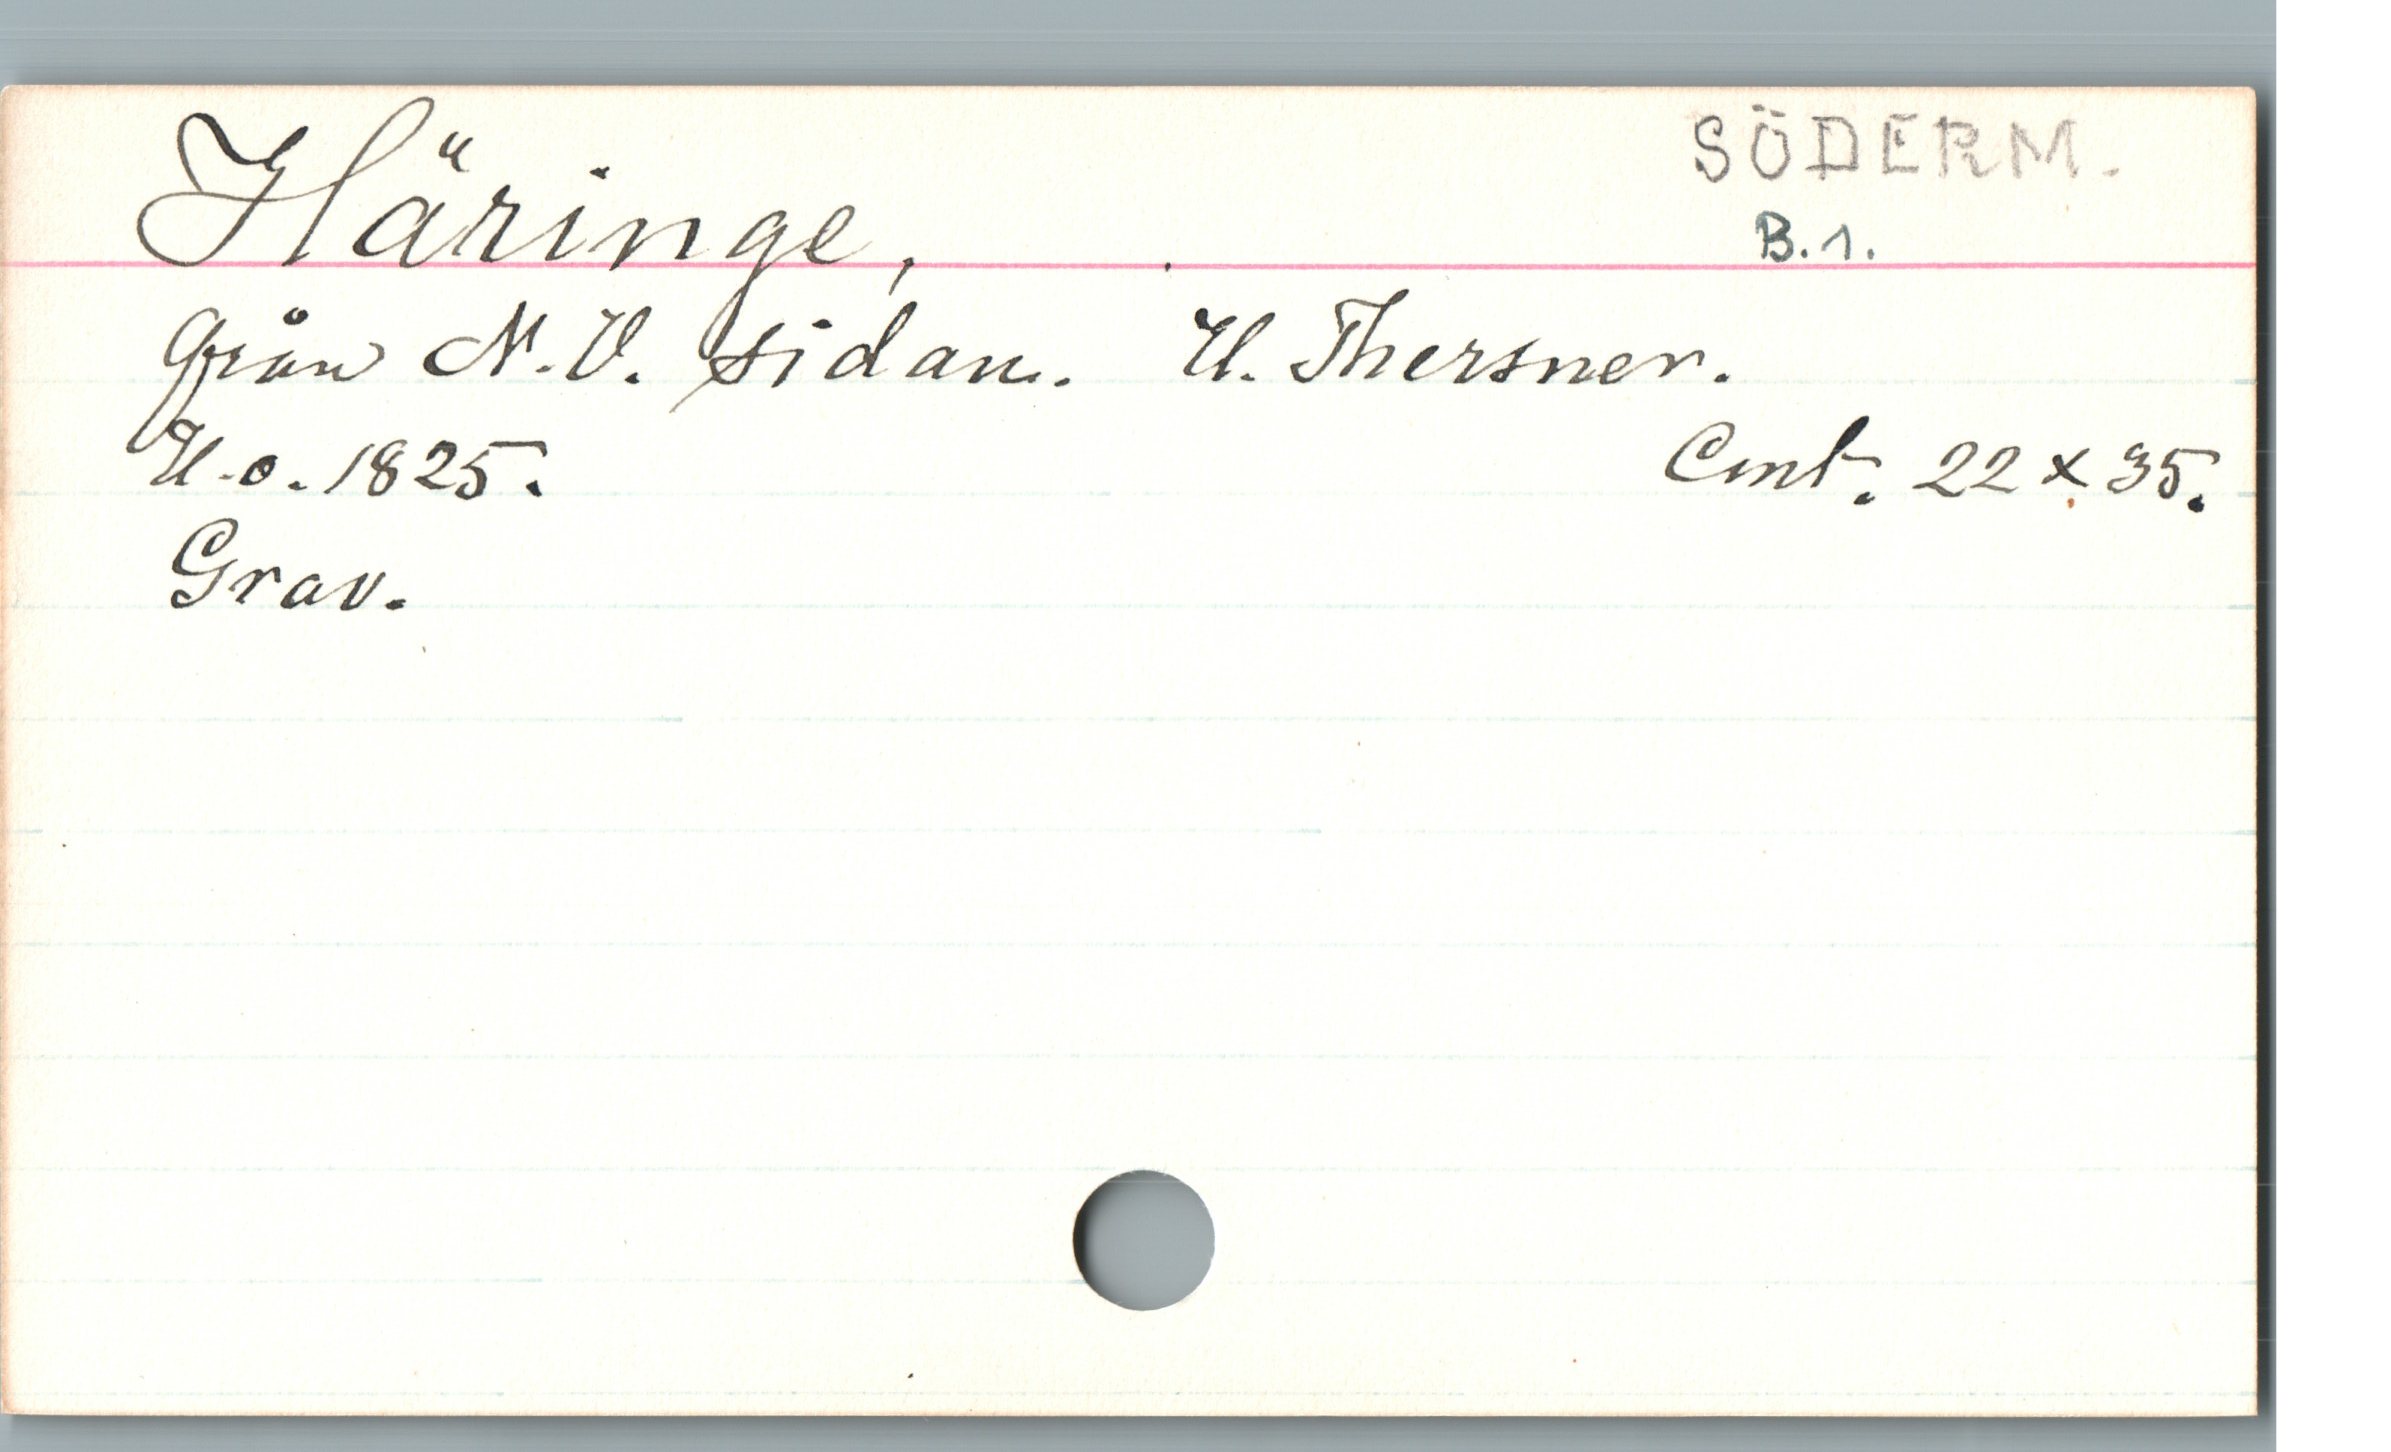 Häringe,
SÖDERM.
B.1.
från N.V. sidan. U. Thersner.
U.o. 1825. Cmt. 22 x 35.
Grav.